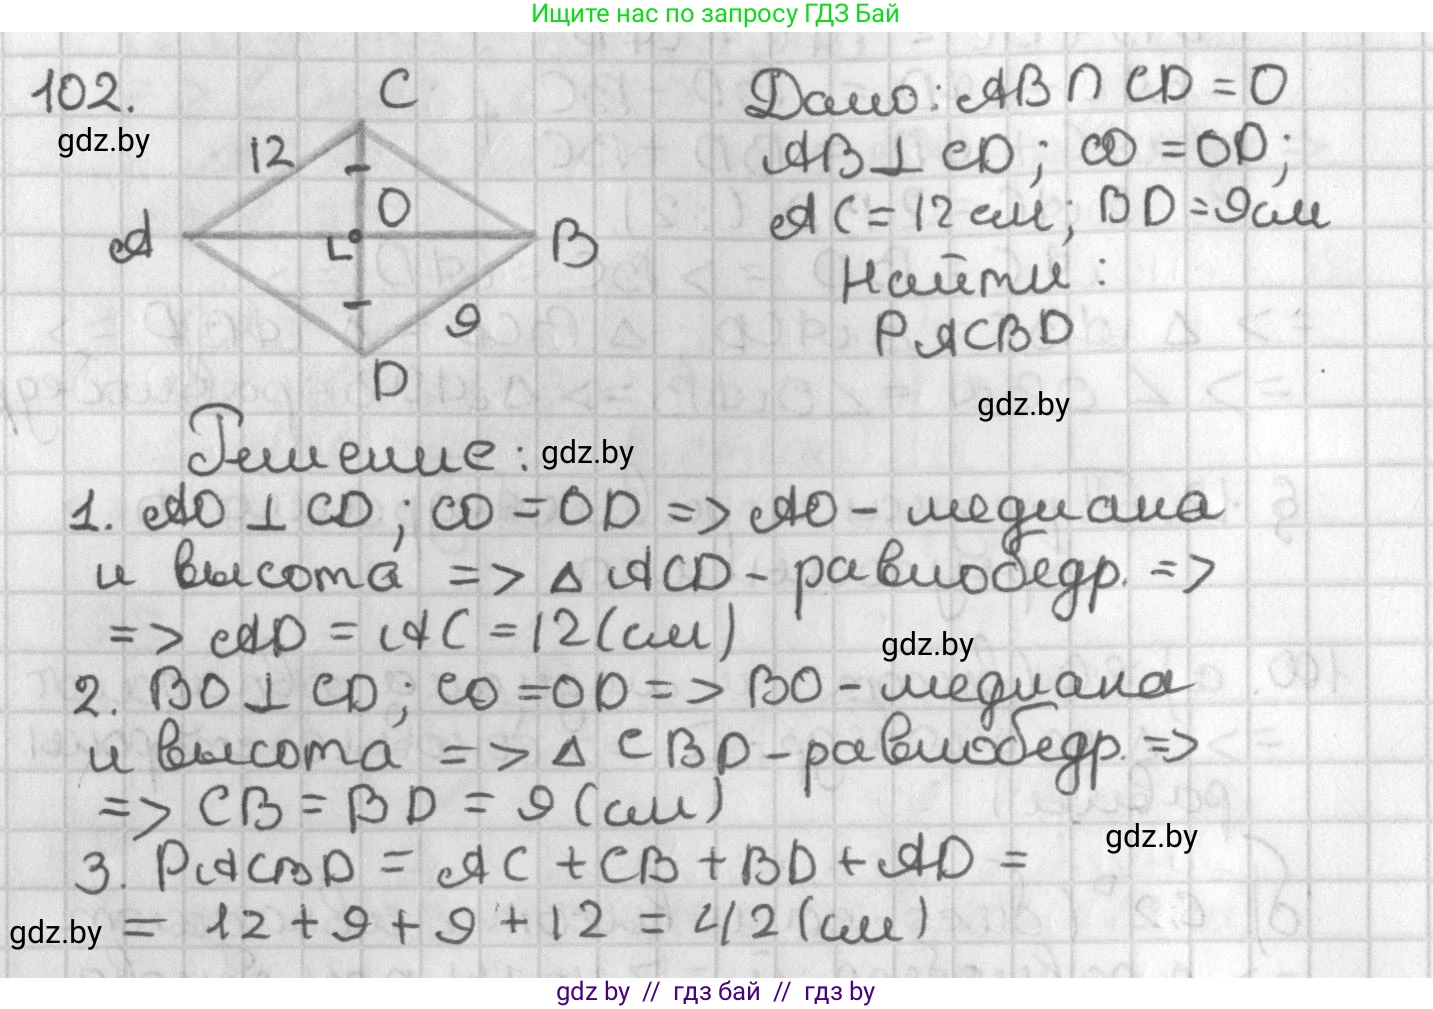 Ищите нас по запросу ГДЗ Бай
102.
gdz.by
C
12
O
A
B
9
D
Дано: AB ∩ CD = O
AB ⊥ CD; CO = OD;
AC = 12 см; BD = 9 см
Найти:
PACBD
gdz.by
Решение:
gdz.by
1. AO ⊥ CD; CO = OD => AO - медиана
и высота => △ ACD - равнобедр. =>
=> AD = AC = 12 (см)
gdz.by
2. BO ⊥ CD; CO = OD => BO - медиана
и высота => △ CBD - равнобедр. =>
=> CB = BD = 9 (см)
gdz.by
3. PACBD = AC + CB + BD + AD =
= 12 + 9 + 9 + 12 = 42 (см)
gdz.by
gdz by // гдз бай // гдз by